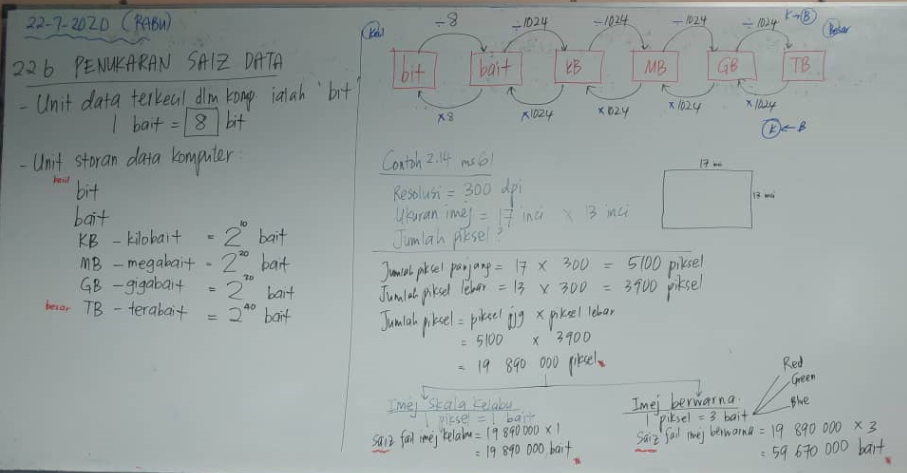 22-7-2020 (RABU)
22b PENUKARAN SAIZ DATA
- Unit data terkecil dlm komp. ialah 'bit'
1 bait = 8 bit
- Unit storan data komputer:
kecil
bit
bait
KB - kilobait = 2^10 bait
MB - megabait = 2^20 bait
GB - gigabait = 2^30 bait
besar TB - terabait = 2^40 bait
÷8 ÷1024 ÷1024 ÷1024 ÷1024 K→B
Kecil Besar
bit bait KB MB GB TB
×8 ×1024 ×1024 ×1024 ×1024
K←B
Contoh 2.14 ms 61
Resolusi = 300 dpi
Ukuran imej = 17 inci × 13 inci
Jumlah piksel?
17 inci
13 inci
Jumlah piksel panjang = 17 × 300 = 5100 piksel
Jumlah piksel lebar = 13 × 300 = 3900 piksel
Jumlah piksel = piksel pjg × piksel lebar
= 5100 × 3900
= 19 890 000 piksel
Imej skala kelabu
1 piksel = 1 bait
Saiz fail imej kelabu = 19 890 000 × 1
= 19 890 000 bait
Imej berwarna.
1 piksel = 3 bait
Red
Green
Blue
Saiz fail imej berwarna = 19 890 000 × 3
= 59 670 000 bait